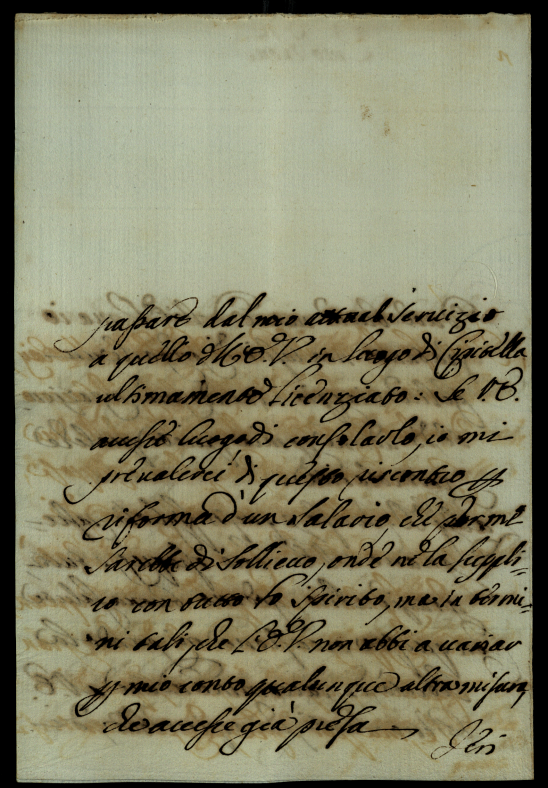 passare dal mio attual seruizio
a quello di V. E. in luogo di
ultimamente licenziato: Se V. E.
auesse luogo di consolarlo, io mi
preualerei di questo riscontro p
riforma d'un salario, che per me
sarebbe di sollieuo, onde ne la suppli-
co con tutto lo spirito, ma in termi-
ni tali, che l'E. V. non abbi a uariar
p mio conto qualunque altra misura,
che auesse già presa
Jeri